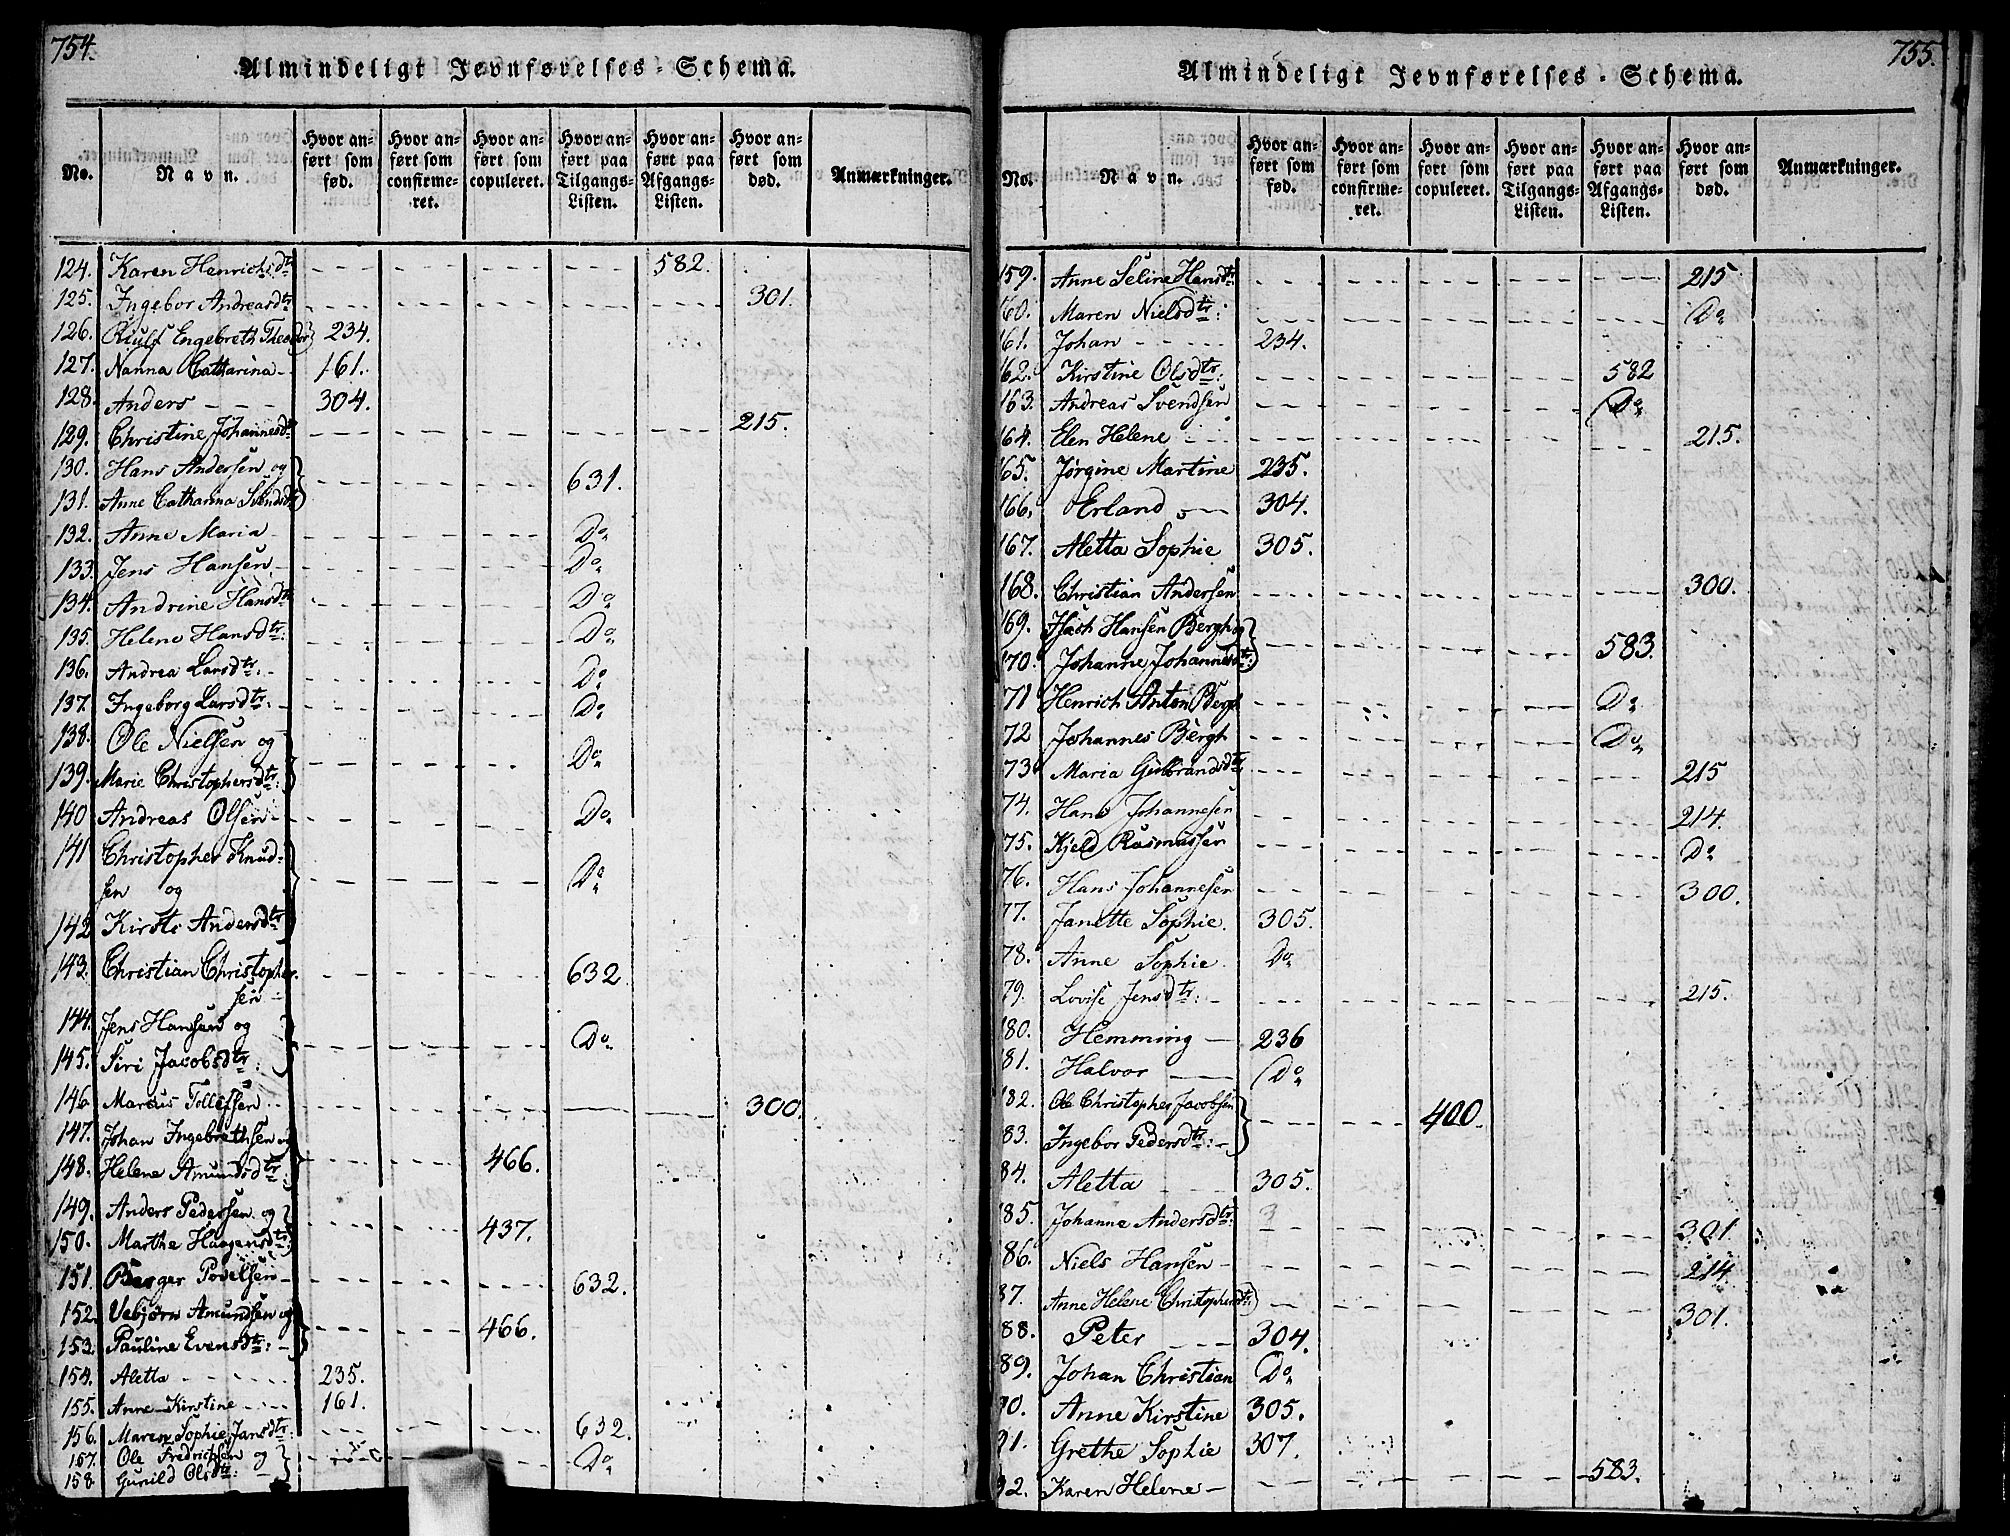 754.
Almindeligt Jevnførelses-Schema.
No. Navn. Hvor anført som fød. Hvor anført som confirmeret. Hvor anført som copuleret. Hvor anført paa Tilgangs-Listen. Hvor anført paa Afgangs-Listen. Hvor anført som død. Anmærkninger.
124. Karen Henrichsdtr 582.
125. Ingebor Andreasdtr 301.
126. Engebreth Theodor 234.
127. Nanna Catharina 161.
128. Anders 304.
129. Christine Johannesdr 215.
130. Hans Andersen og
131. Anne Catharina Svendsdtr 631.
132. Anne Maria Do
133. Jens Hansen Do
134. Andrine Hansdtr Do
135. Helene Hansdtr: Do
136. Andrea Larsdtr: Do
137. Ingeborg Larsdtr: Do
138. Ole Nielsen og
139. Marie Christophersdtr: Do
140 Andreas Olsen Do
141 Christopher Knud-
sen og Do
142 Kirsti Andersdtr
143. Christian Christopher-
sen 632
144. Jens Hansen og
145. Siri Jacobsdtr: Do
146 Marcus Tollefsen 300.
147. Johan Ingebrethsen og
148. Helene Amundsdtr: 466.
149. Anders Pedersen og
150. Marthe Haagensdtr: 437.
151. Berger Povelsen 632.
152. Vebjørn Amundsen og
153. Pauline Evensdtr: 466.
154. Aletta 235.
155. Anne Kirstine 161.
156. Maren Sophie Jansdtr: 632.
157. Ole Fredrichsen og
158. Gunild Olsdtr: Do
755.
Almindeligt Jevnførelses-Schema.
No. Navn. Hvor anført som fød. Hvor anført som confirmeret. Hvor anført som copuleret. Hvor anført paa Tilgangs-Listen. Hvor anført paa Afgangs-Listen. Hvor anført som død. Anmærkninger.
159. Anne Seline Hansdtr: 215
60. Maren Nielsdtr: Do
161. Johan 234.
162. Kirstine Olsdtr: 582
163. Andreas Svendsen Do
164. Elen Helene 215.
165. Jørgine Martine 235.
166. Erland 304.
167. Aletta Sophie 305.
168. Christian Andersen 300.
169. Isach Hansen Bergh og
170. Johanne Johannesdtr: 583.
71 Henrich Anton Bergh Do
72 Johannes Bergh Do
73 Maria Gulbrandsdtr 215
74. Hans Johannesen 214.
75. Kjeld Rasmussen Do
76. Hans Johannesen 300.
77. Janette Sophie. 305.
78. Anne Sophie Do
79. Lovise Jensdtr: 215.
180. Hemming 236
81. Halvor Do
182. Ole Christopher Jacobsen
83. Ingebor Pedersdtr: 400.
84. Aletta 305.
185. Johanne Andersdtr: 301
86. Niels Hansen 214
87. Anne Helene Christophersdtr 301.
88. Peter 304.
89. Johan Christian Do
90. Anne Kirstine 305.
91. Grethe Sophie 307.
92. Karen Helene 583.